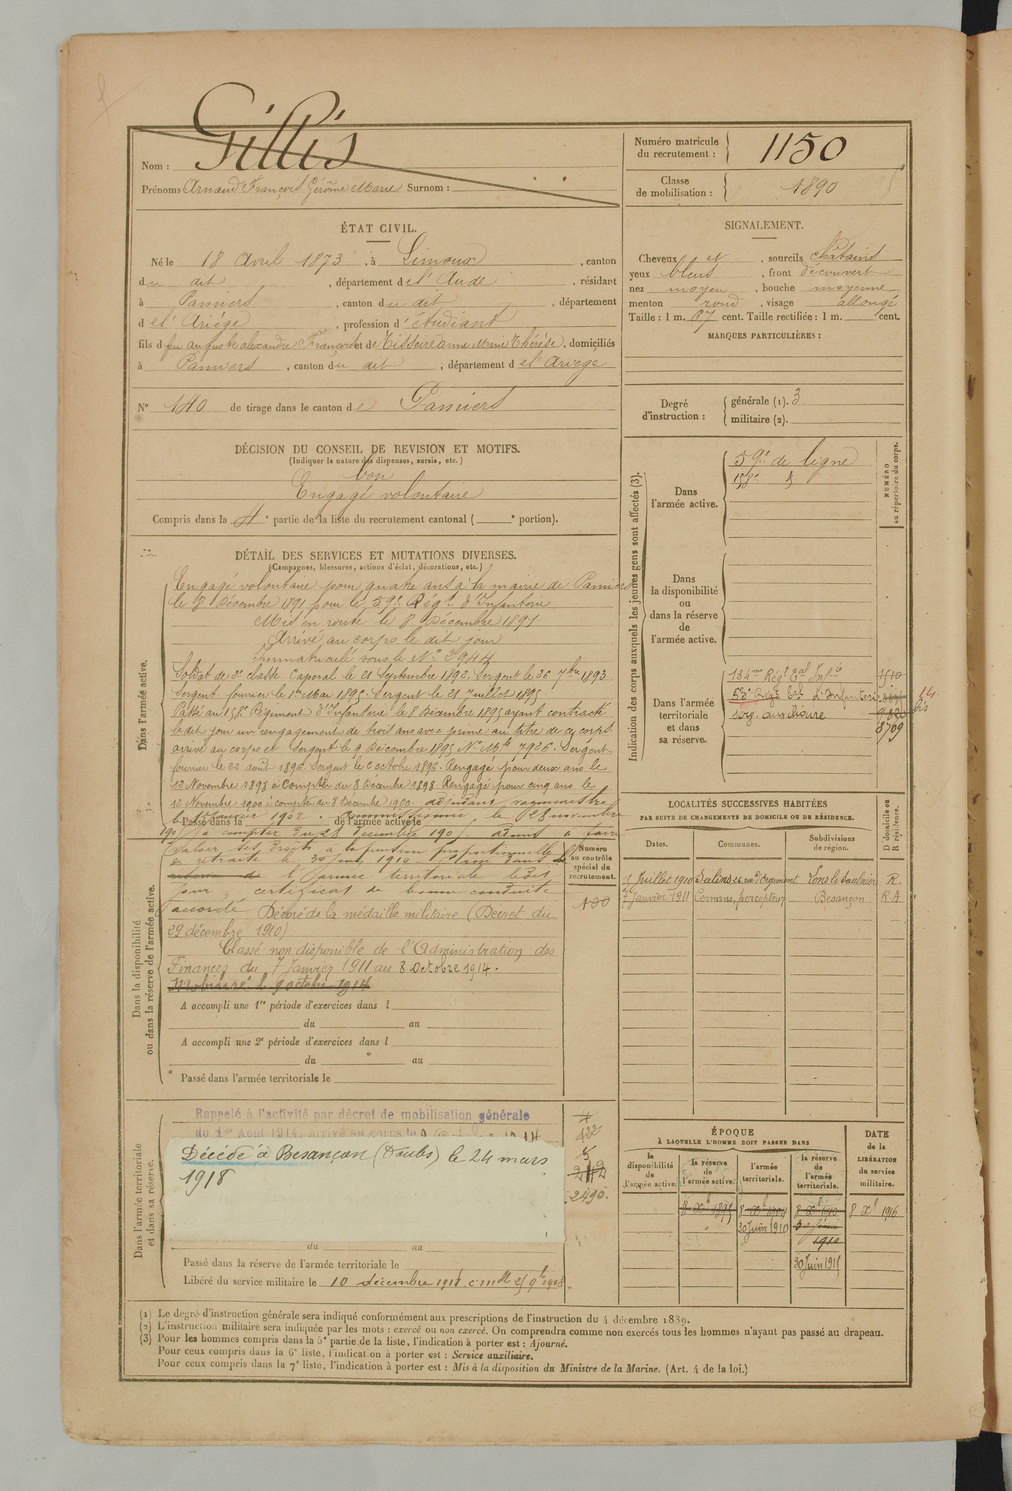 Nom : Gillis
Prénoms Arnaud François Jérôme Marie Surnom :
Numéro matricule du recrutement : 1150
Classe de mobilisation : 1890
ÉTAT CIVIL.
Né le 18 Avril 1873, à Limoux, canton
du dit, département de l'Aude, résidant
à Pamiers, canton du dit, département
de l'Ariège, profession d'étudiant
fils d feu auguste alexandre François et de Tisseire anne Marie Thérèse, domiciliés
à Pamiers, canton du dit, département de l'Ariège
N° 140 de tirage dans le canton de Pamiers
SIGNALEMENT.
Cheveux et, sourcils châtains
yeux bleus, front découvert
nez moyen, bouche moyenne
menton rond, visage allongé
Taille : 1 m. 67 cent. Taille rectifiée : 1 m. cent.
MARQUES PARTICULIÈRES :
Degré d'instruction : générale (1). 3
militaire (2).
DÉCISION DU CONSEIL DE REVISION ET MOTIFS.
(Indiquer la nature des dispenses, sursis, etc.)
bon
Engagé volontaire
Compris dans la 4e partie de la liste du recrutement cantonal ( e portion).
DÉTAIL DES SERVICES ET MUTATIONS DIVERSES.
(Campagnes, blessures, actions d'éclat, décorations, etc.)
Dans l'armée active.
Engagé volontaire pour quatre ans à la mairie de Pamiers
le 8 Décembre 1891 pour le 59e Régt d'Infanterie
Mis en route le 8 Décembre 1891
Arrivé au corps le dit jour
Immatriculé sous le N° 2944
Soldat de 2e classe. Caporal le 21 Septembre 1892. Sergent le 26 7bre 1893.
Sergent fourrier le 1er Mai 1895. Sergent le 21 Juillet 1895.
Passé au 158e Régiment d'Infanterie le 8 Décembre 1895 ayant contracté
le dit jour un rengagement de trois ans avec prime au titre de ce corps
arrivé au corps et Sergent le 9 Décembre 1895 N° Mle 7926. Sergent-
fourrier le 22 août 1896. Sergent le 2 octobre 1896. Rengagé pour deux ans le
12 Novembre 1898 à compter du 8 Décembre 1898. Rengagé pour cinq ans le
12 Novembre 1900 à compter du 8 Décembre 1900. adjudant vaguemestre
1902. Commissionné le 28 novembre
Passé dans la de l'armée active le
190 à compter du 28 décembre 190 admis à faire
valoir ses droits à la pension proportionnelle
de retraite le 30 Juin 1910. Placé dans
l'armée territoriale le dit
jour, certificat de bonne conduite
accordé. Décoré de la médaille militaire (Décret du
29 décembre 1910)
Classé non disponible de l'Administration des
Finances du 7 Janvier 1911 au 8 Octobre 1914.
Mobilisé le 9 octobre 1914
Dans la disponibilité ou dans la réserve de l'armée active.
A accompli une 1re période d'exercices dans l
du au
A accompli une 2e période d'exercices dans l
du au
Passé dans l'armée territoriale le
Numéro au contrôle spécial du recrutement.
100
Indication des corps auxquels les jeunes gens sont affectés (3).
NUMÉRO au répertoire du corps.
Dans l'armée active.
59e de ligne
158e
Dans la disponibilité ou dans la réserve de l'armée active.
Dans l'armée territoriale et dans sa réserve.
134me Régt Eal Infie 1510
55e Régt Eal d'Infanterie
serg. auxiliaire
8709
LOCALITÉS SUCCESSIVES HABITÉES
PAR SUITE DE CHANGEMENTS DE DOMICILE OU DE RÉSIDENCE.
Dates. Communes. Subdivisions de région. D. domicile ou R. résidence.
1 Juillet 1910 Salins, 26, rue d'Orgemont Lons le Saulnier R.
7 janvier 1911 Cemans, percepteur Besançon R.A
Dans l'armée territoriale et dans sa réserve.
Rappelé à l'activité par décret de mobilisation générale
du 1er Août 1914, arrivé au corps le
Décédé à Besançon (Doubs) le 24 mars
1918
du au
Passé dans la réserve de l'armée territoriale le
Libéré du service militaire le 10 décembre 1918.
212
2490.
ÉPOQUE
À LAQUELLE L'HOMME DOIT PASSER DANS
la disponibilité de l'armée active.
la réserve de l'armée active.
l'armée territoriale.
la réserve de l'armée territoriale.
DATE de la LIBÉRATION du service militaire.
8 Xbre 1895
8 Xbre 1904
30 Juin 1910
8 Xbre 1910
30 Juin 1915
8 Xbre 1916
(1) Le degré d'instruction générale sera indiqué conformément aux prescriptions de l'instruction du 4 décembre 1889.
(2) L'instruction militaire sera indiquée par les mots : exercé ou non exercé. On comprendra comme non exercés tous les hommes n'ayant pas passé au drapeau.
(3) Pour les hommes compris dans la 5e partie de la liste, l'indication à porter est : Ajourné.
Pour ceux compris dans la 6e liste, l'indication à porter est : Service auxiliaire.
Pour ceux compris dans la 7e liste, l'indication à porter est : Mis à la disposition du Ministre de la Marine. (Art. 4 de la loi.)